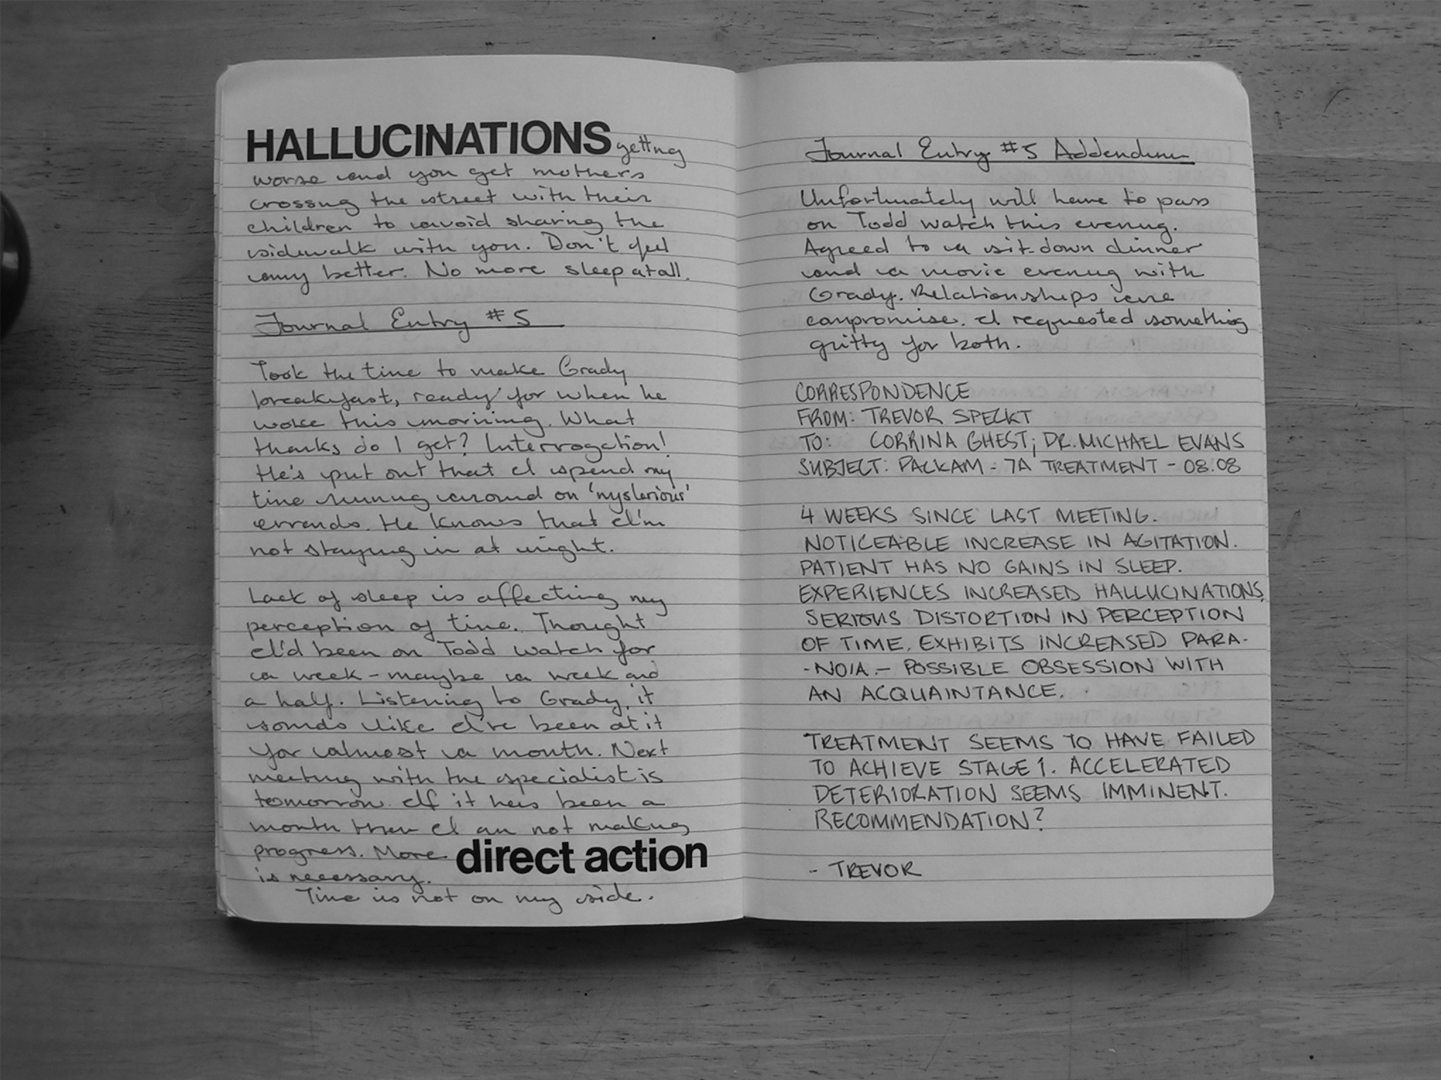 HALLUCINATIONS getting
worse and you get mothers
crossing the street with their
children to avoid sharing the
sidewalk with you. Don't feel
any better. No more sleep at all.
Journal Entry #5
Took the time to make Grady
breakfast, ready for when he
woke this morning. What
thanks do I get? Interrogation!
He's put out that I spend my
time running around on 'mysterious'
errands. He knows that I'm
not staying in at night.
Lack of sleep is affecting my
perception of time. Thought
I'd been on Todd watch for
a week - maybe a week and
a half. Listening to Grady, it
sounds like I've been at it
for almost a month. Next
meeting with the specialist is
tomorrow. If it has been a
month then I am not making
progress. More direct action
is necessary.
Time is not on my side.
Journal Entry #5 Addendum
Unfortunately will have to pass
on Todd watch this evening.
Agreed to a sit-down dinner
and a movie evening with
Grady. Relationships are
compromise. I requested something
gritty for both.
CORRESPONDENCE
FROM: TREVOR SPECKT
TO: CORRINA GHEST; DR. MICHAEL EVANS
SUBJECT: PACKAM - 7A TREATMENT - 08.08
4 WEEKS SINCE LAST MEETING.
NOTICEABLE INCREASE IN AGITATION.
PATIENT HAS NO GAINS IN SLEEP.
EXPERIENCES INCREASED HALLUCINATIONS,
SERIOUS DISTORTION IN PERCEPTION
OF TIME. EXHIBITS INCREASED PARA-
-NOIA - POSSIBLE OBSESSION WITH
AN ACQUAINTANCE.
TREATMENT SEEMS TO HAVE FAILED
TO ACHIEVE STAGE 1. ACCELERATED
DETERIORATION SEEMS IMMINENT.
RECOMMENDATION?
- TREVOR